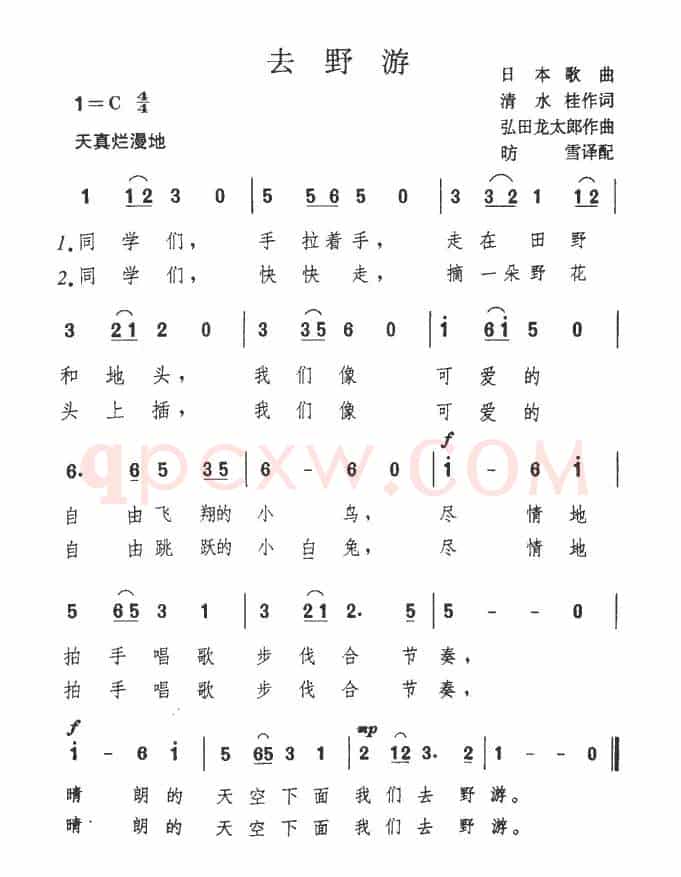 去野游
日本歌曲
1=C 4/4
清水桂作词
弘田龙太郎作曲
天真烂漫地
昉雪译配
1 12 3 0 | 5 56 5 0 | 3 32 1 12 |
1.同学们, 手拉着手, 走在田野
2.同学们, 快快走, 摘一朵野花
3 21 2 0 | 3 35 6 0 | i 6i 5 0 |
和地头, 我们像 可爱的
头上插, 我们像 可爱的
f
6. 6 5 35 | 6 - 6 0 | i - 6 i |
qpcxw.COM
自由飞翔的小鸟, 尽情地
自由跳跃的小白兔, 尽情地
5 65 3 1 | 3 21 2. 5 | 5 - - 0 |
拍手唱歌步伐合节奏,
拍手唱歌步伐合节奏,
f mp
i - 6 i | 5 65 3 1 | 2 12 3. 2 | 1 - - 0 ‖
晴朗的天空下面我们去野游。
晴朗的天空下面我们去野游。